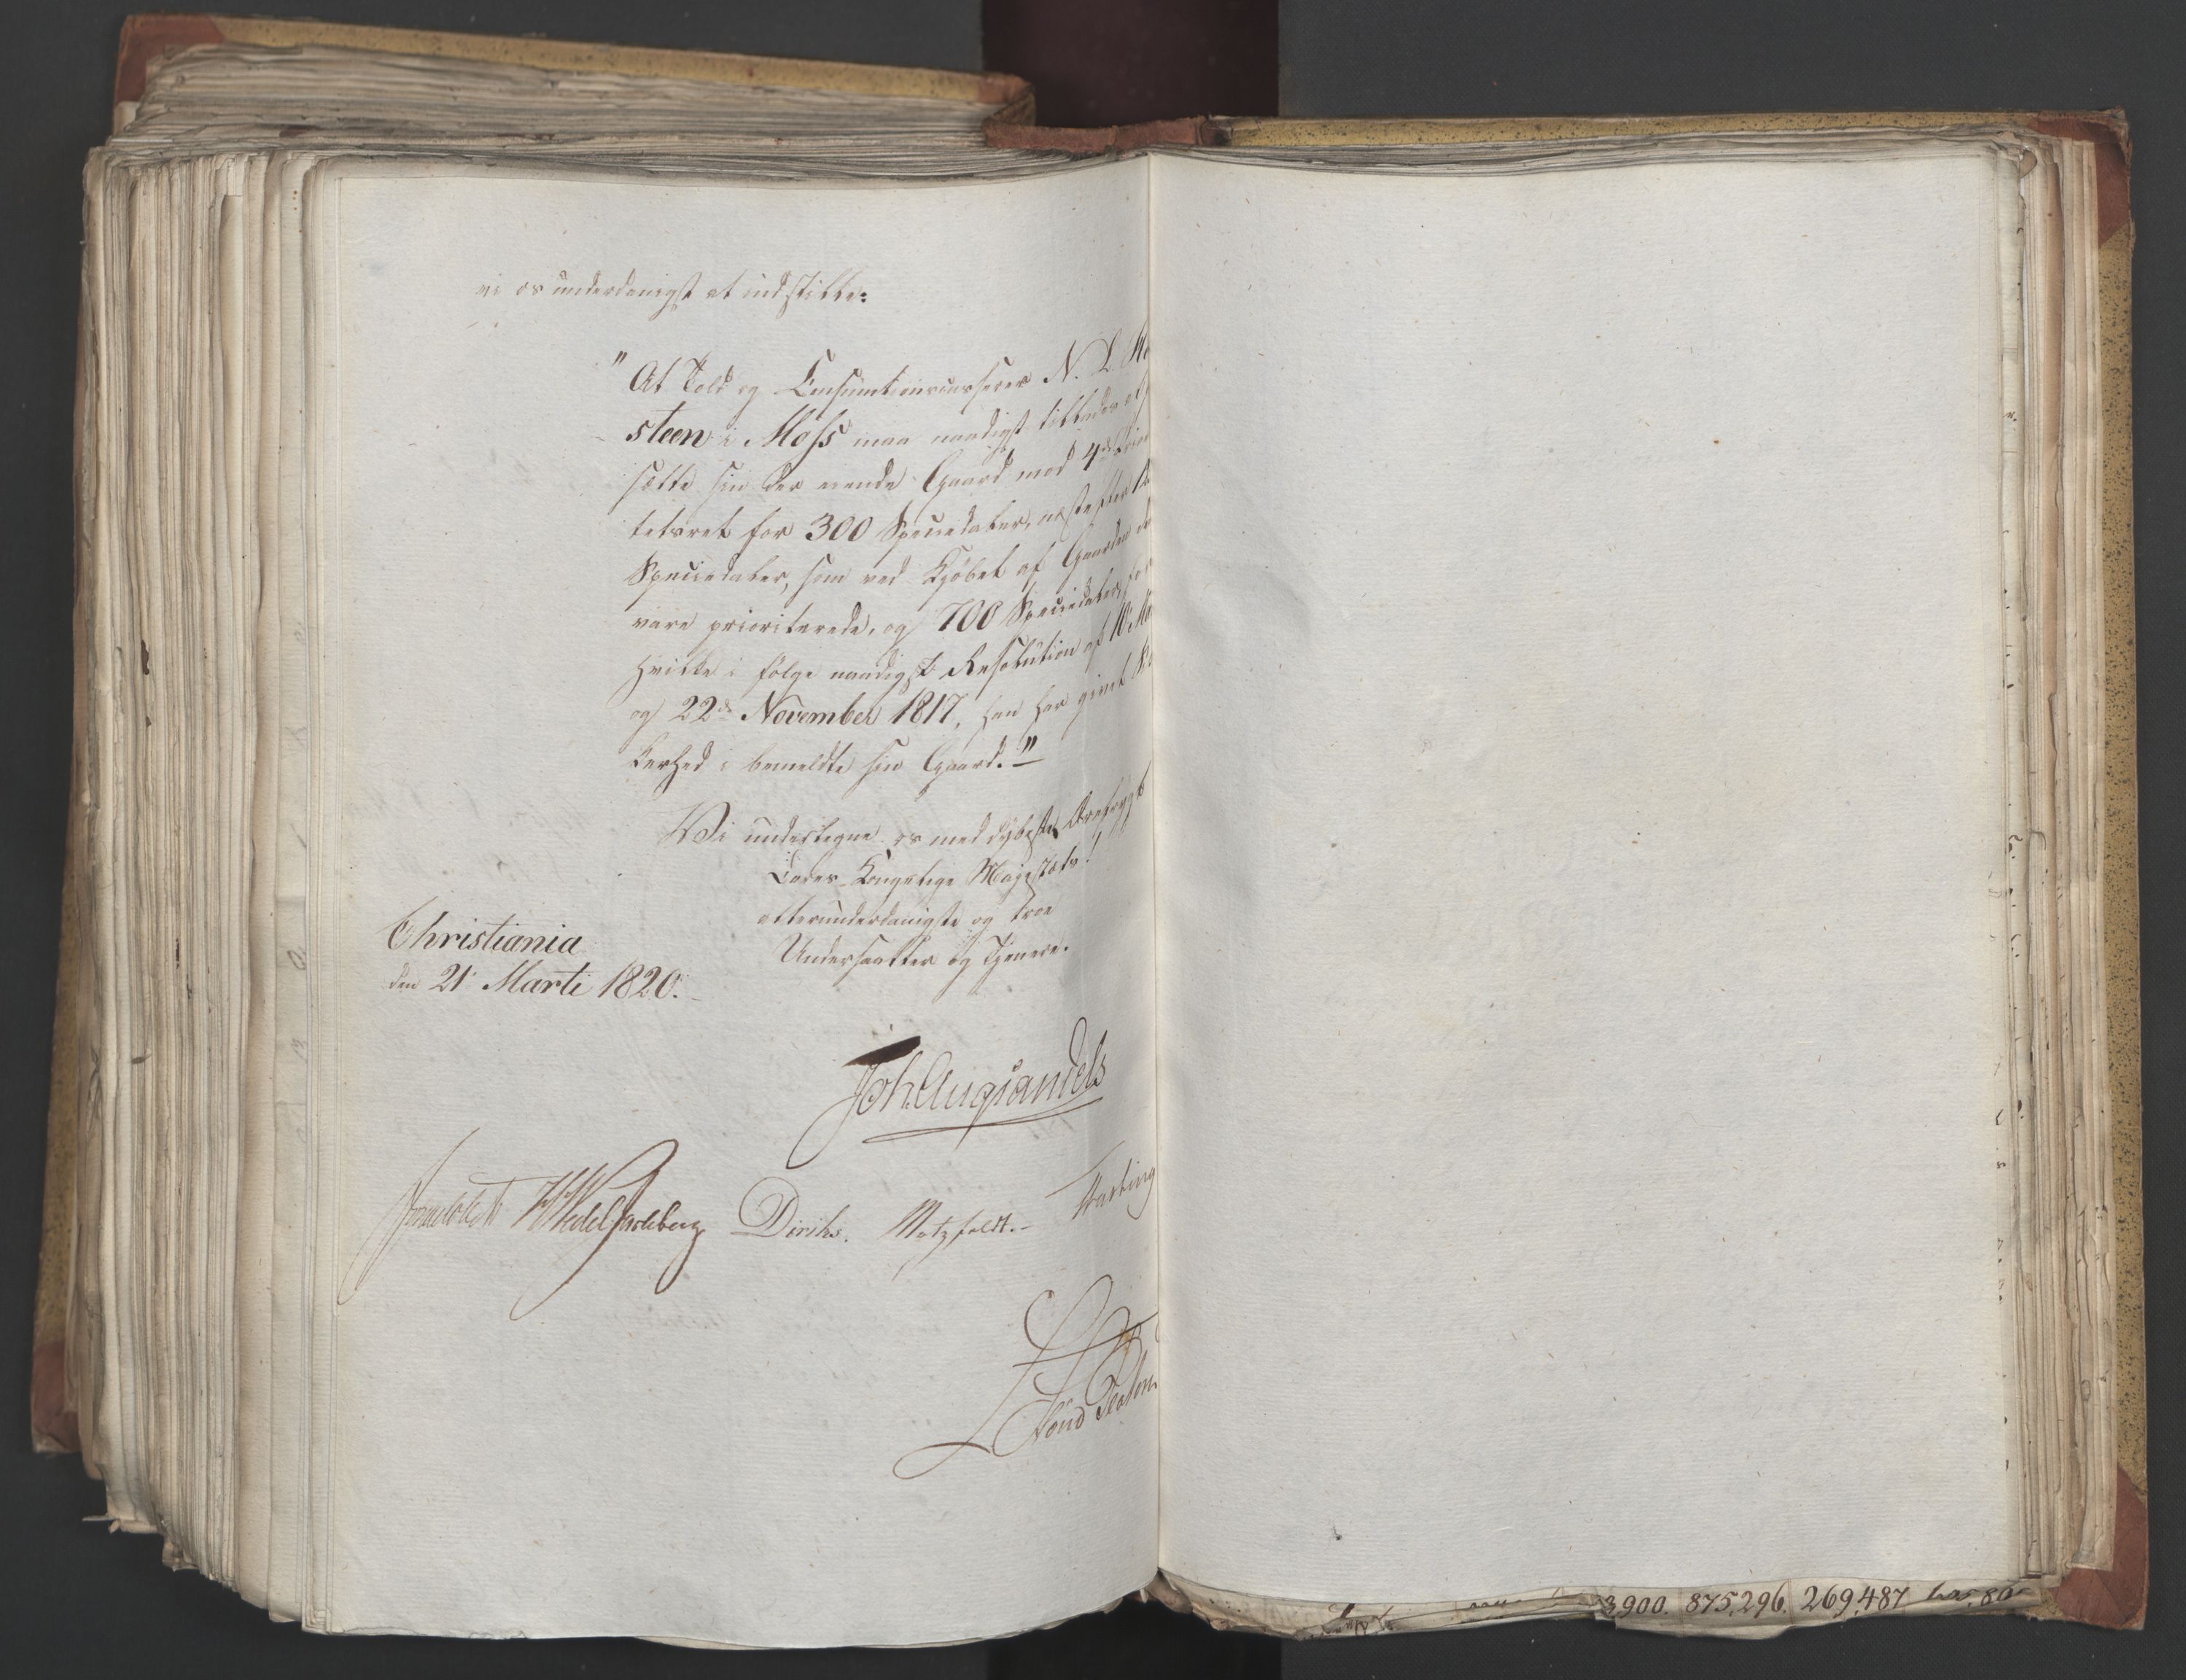 vi os underdanigst at indstille:
"At Told og Consumtionscasserer N. L.
steen i Moss maa naadigst tillades at
sætte sin der eiende Gaard med 4de Prior
tetsret for 300 Speciedaler, næstefter
Speciedaler, som ved Kjøbet af Gaarden
vare prioriterede, og 700 Speciedaler, for
hvilke i følge naadigst Resolution af
og 22de November 1817, han har givet
kerhed i bemeldte sin Gaard."
Vi undertegne os med dybeste Ærefrygt
Deres Kongelige Majestæts!
allerunderdanigste og troe
Undersaatter og Tjenere.
Christiania
den 21 Marti 1820.
Joh. Aug. Sandels
HWedel Jarlsberg Diriks. Motzfeldt. Fasting
3,900. 875,296. 269,487